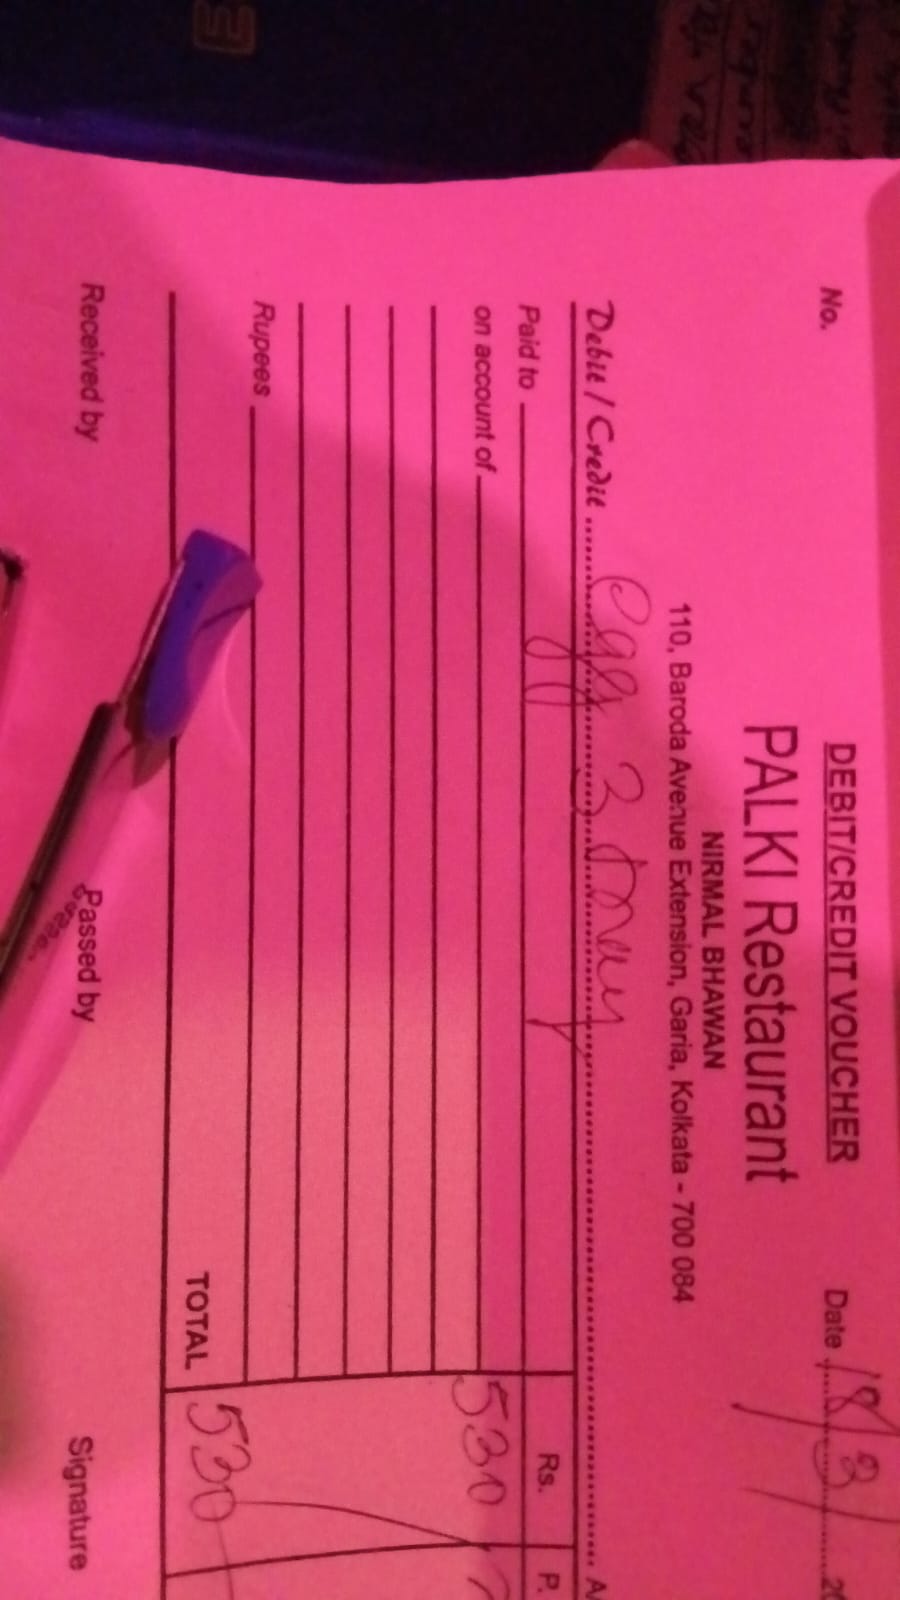 DEBIT/CREDIT VOUCHER
No. Date 18/3/ 20
PALKI Restaurant
NIRMAL BHAWAN
110, Baroda Avenue Extension, Garia, Kolkata - 700 084
Debit / Credit egg 2 A/
Paid to Rs. P.
on account of 530
Rupees
TOTAL 530
Received by Passed by Signature